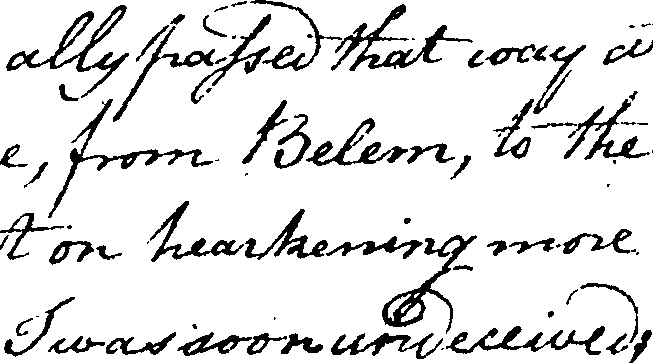 ally passed that way a
e, from Belem, to the
t on hearkening more
I was soon undeceived,